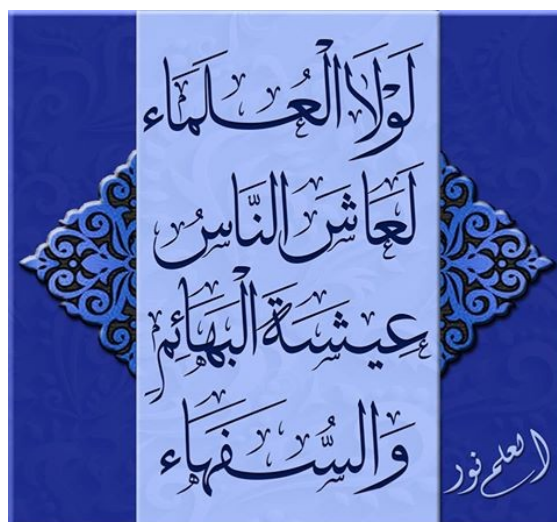 لَوْلَا الْعُلَمَاء
لَعَاشَ النَّاسُ
عِيشَةَ الْبَهَائِمِ
وَالسُّفَهَاء
العلم نور